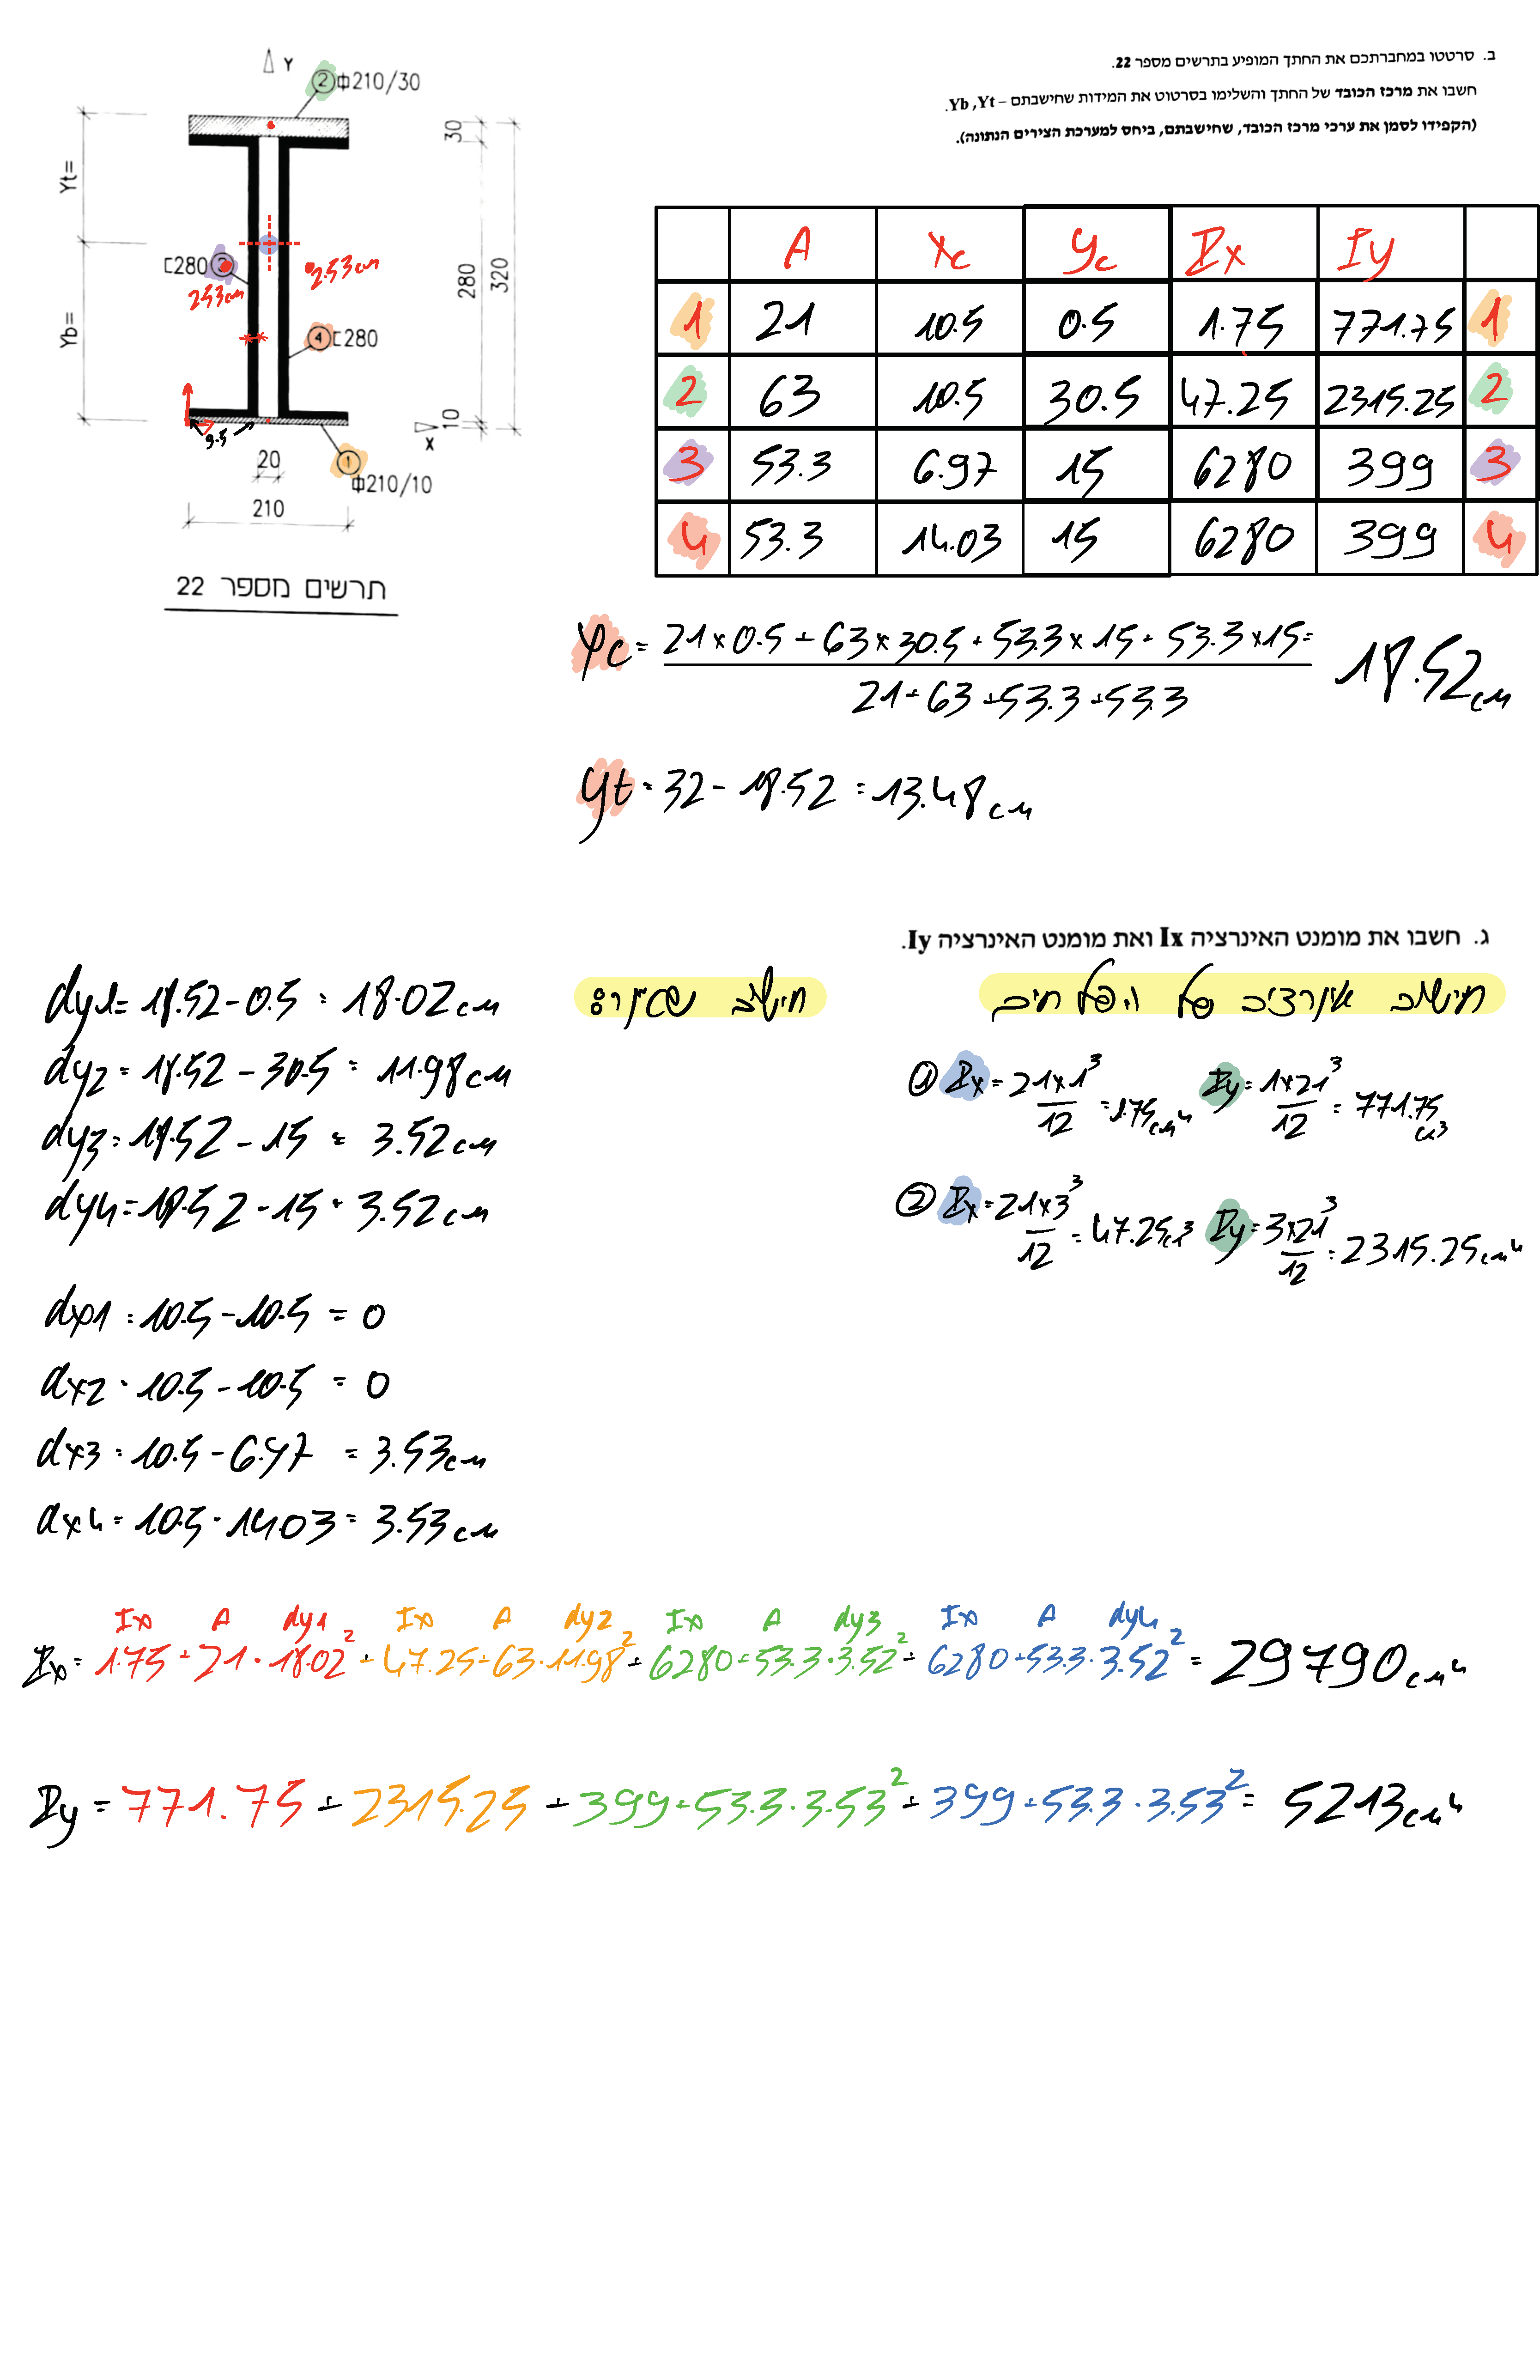 ב. סרטטו במחברתכם את החתך המופיע בתרשים מספר 22.
חשבו את מרכז הכובד של החתך והשלימו בסרטוט את המידות שחישבתם – Yb ,Yt.
(הקפידו לסמן את ערכי מרכז הכובד, שחישבתם, ביחס למערכת הצירים הנתונה).
Y
2 210/30
30
Yt=
280 3
2.53cm
2.53cm
280
320
Yb=
4 280
9.5
X
10
20
1
210/10
210
תרשים מספר 22
A Xc Yc Ix Iy
1 21 10.5 0.5 1.75 771.75 1
2 63 10.5 30.5 47.25 2315.25 2
3 53.3 6.97 15 6280 399 3
4 53.3 14.03 15 6280 399 4
yc = 21×0.5 + 63×30.5 + 53.3×15 + 53.3×15 = 18.52cm
21+63+53.3+53.3
yt = 32 - 18.52 = 13.48cm
ג. חשבו את מומנט האינרציה Ix ואת מומנט האינרציה Iy.
חישוב אינרציה של הפלחים
① Ix = 21×1³ / 12 = 1.75cm⁴ Iy = 1×21³ / 12 = 771.75 cm³
② Ix = 21×3³ / 12 = 47.25cm³ Iy = 3×21³ / 12 = 2315.25cm⁴
חישוב
dy1 = 18.52 - 0.5 = 18.02cm
dy2 = 18.52 - 30.5 = 11.98cm
dy3 = 18.52 - 15 = 3.52cm
dy4 = 18.52 - 15 = 3.52cm
dx1 = 10.5 - 10.5 = 0
dx2 = 10.5 - 10.5 = 0
dx3 = 10.5 - 6.97 = 3.53cm
dx4 = 10.5 - 14.03 = 3.53cm
Ix A dy1 Ix A dy2 Ix A dy3 Ix A dy4
Ix = 1.75 + 21 · 18.02² + 47.25 + 63 · 11.98² + 6280 + 53.3 · 3.52² + 6280 + 53.3 · 3.52² = 29790cm⁴
Iy = 771.75 + 2315.25 + 399 + 53.3 · 3.53² + 399 + 53.3 · 3.53² = 5213cm⁴